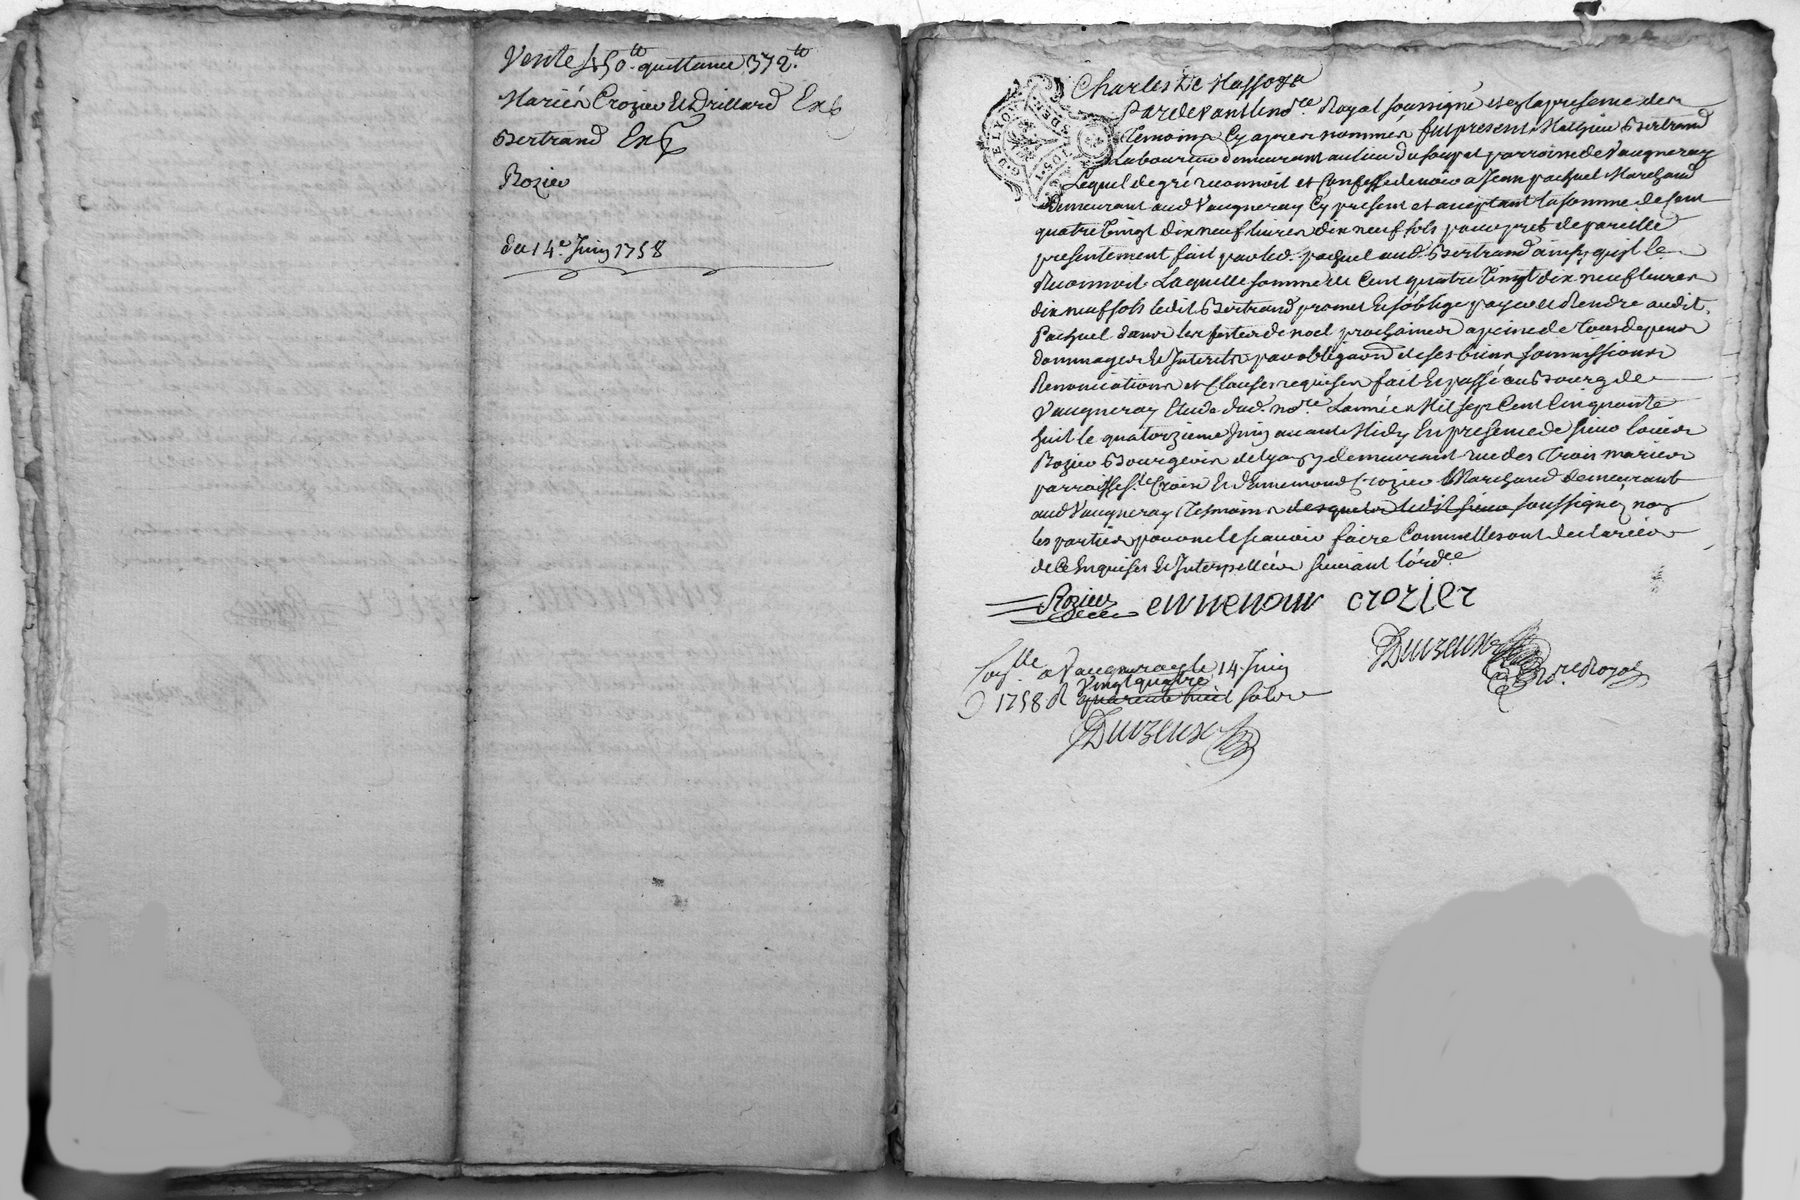 Vente 450.tt quittance 372.tt
Mariés Crozier et Drillard Exp
Bertrand Exp
Rozier
du 14.e Juin 1758
Charles De Masso
G. DE LYON
Pardevant le no.re Royal soussigné et en la presence des
temoins cy apres nommés fut present Mathieu Bertrand
Laboureur demeurant au lieu du parroisse de Vaugneray
Lequel de gré reconnoit et confesse devoir a Jean pachuel Marchand
demeurant aud Vaugneray cy present et aceptant la somme de Cent
quatre vingt dix neuf livres dix neuf sols pour pret de pareille
presentement fait par led. pachuel aud. Bertrand ainsy quil le
Reconnoit. Laquelle somme de Cent quatre vingt dix neuf livres
dix neuf sols ledit Bertrand promet et soblige payer et Rendre audit
Pachuel dans les festes de noel prochaines a peine de tous depens
dommages et Interets par obligaon de ses biens soumissions
Renonciations et clauses requises fait et passé au Bourg de
Vaugneray Etude dud. no.re L'année Mil sept Cent Cinquante
huit le quatorzieme Juin avant Midy En presence de sieur
Rozier Bourgeois de Lyon y demeurant rue des trois maries
parroisse S.te Croix et d'Ennemond Crozier Marchand demeurant
aud Vaugneray temoins desquels ledit sieur soussignés non
les parties pour ne le scavoir faire Comme elles ont declaré
de ce Enquises et Interpellées suivant l'ord.ce
Rozier ennemon crozier
Duvzeux no.re Royal
Con.lle a Vaugneray le 14. Juin
1758 R vingt quatre
quarente huit sols
Duvzeux